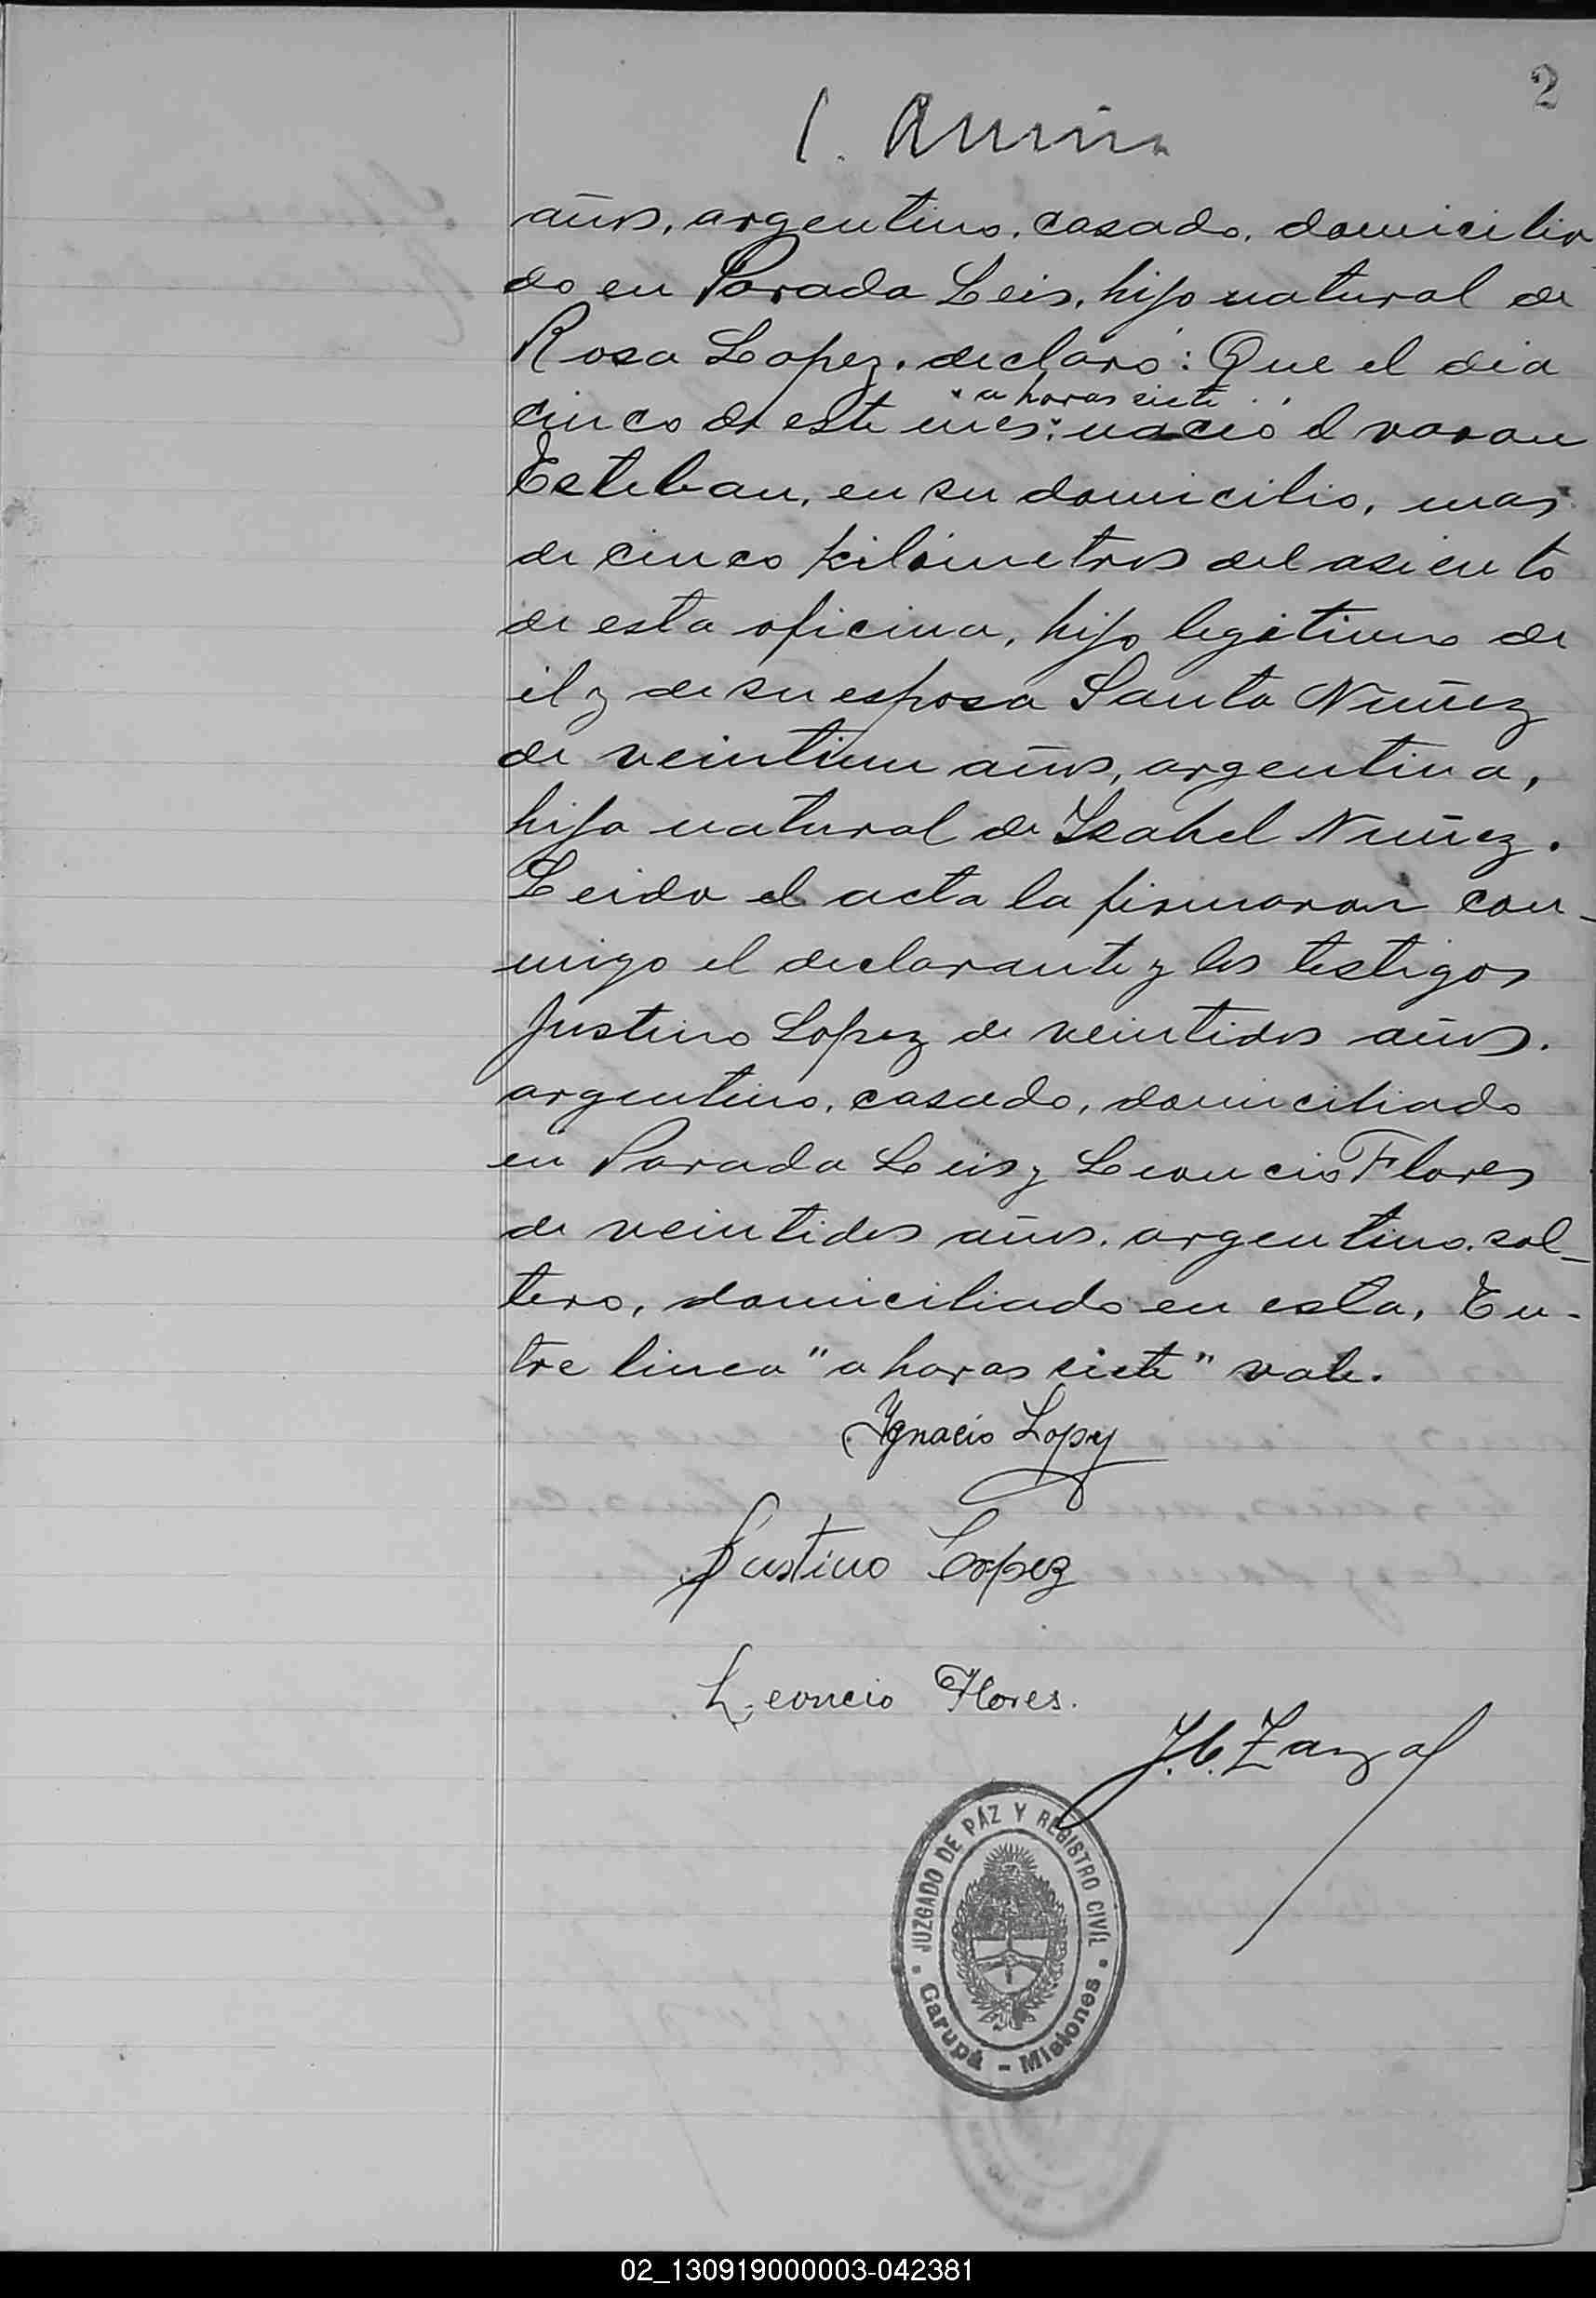 2
años, argentino, casado, domicilia
do en Parada Leis, hijo natural de
Rosa Lopez. declaró: Que el dia
a horas siete
cinco de este mes: nació el varon
Esteban, en su domicilio, mas
de cinco kilómetros del asiento
de esta oficina, hijo legitimo de
él y de su esposa Santa Nuñez
de veintiun años, argentina,
hija natural de Ysabel Nuñez.
Leida el acta la firmaron con-
migo el declarante y los testigos
Justino Lopez de veintidos años.
argentino, casado, domiciliado
en Parada Leis y Leoncio Flores
de veintidos años. argentino. sol-
tero, domiciliado en esta, En-
tre linea "a horas siete" vale.
Ygnacio Lopez
Justino Lopez
Leoncio Flores.
JUZGADO DE PAZ Y REGISTRO CIVIL
Garupá - Misiones
02_130919000003-042381